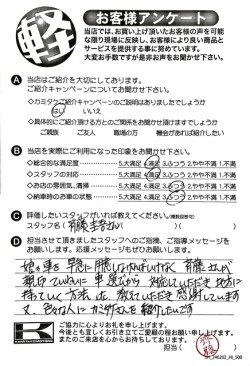 軽
お客様アンケート
当店では、お買い上げ頂いたお客様の声を可能
な限り現場に反映し、お客様により良い商品と
サービスを提供する事に努めています。
大変お手数ですが是非お声をお聞かせ下さい。
A 当店はご紹介を大切にしております。
ご紹介キャンペーンについてもお聞かせ下さい。
◇カミタケご紹介キャンペーンのご説明はありましたでしょうか
はい いいえ
◇具体的にご紹介頂ける方とのご関係をお聞かせ頂けますでしょうか
ご親族 ご友人 職場の方 機会があれば紹介したい
B 当店を実際にご利用になった印象をお聞かせ下さい。
◇総合的な満足度 5.大満足 4.満足 3.ふつう 2.やや不満 1.不満
◇スタッフの対応 5.大満足 4.満足 3.ふつう 2.やや不満 1.不満
◇お店の雰囲気、清掃 5.大満足 4.満足 3.ふつう 2.やや不満 1.不満
◇納車時のお車の状態 5.大満足 4.満足 3.ふつう 2.やや不満 1.不満
C 評価したいスタッフがいれば教えてください。(複数回答可)
スタッフ名( 斉藤 さん )( )
D 担当させて頂きましたスタッフへのご指摘、ご指導メッセージを
お願いします。応援メッセージもお願いします。
娘の車を早急に用意しなければいけなく 斉藤さんが
対応していただき
方法 教えていただき感謝しています
又、色々な人に カミタケさんを紹介したいです
K
ご協力に心よりお礼を申し上げます。
今後とも宜しくお引き立てご愛顧の程お願い申し上げます。
またのご来店を心からお待ちしております。
担当( )
斉藤